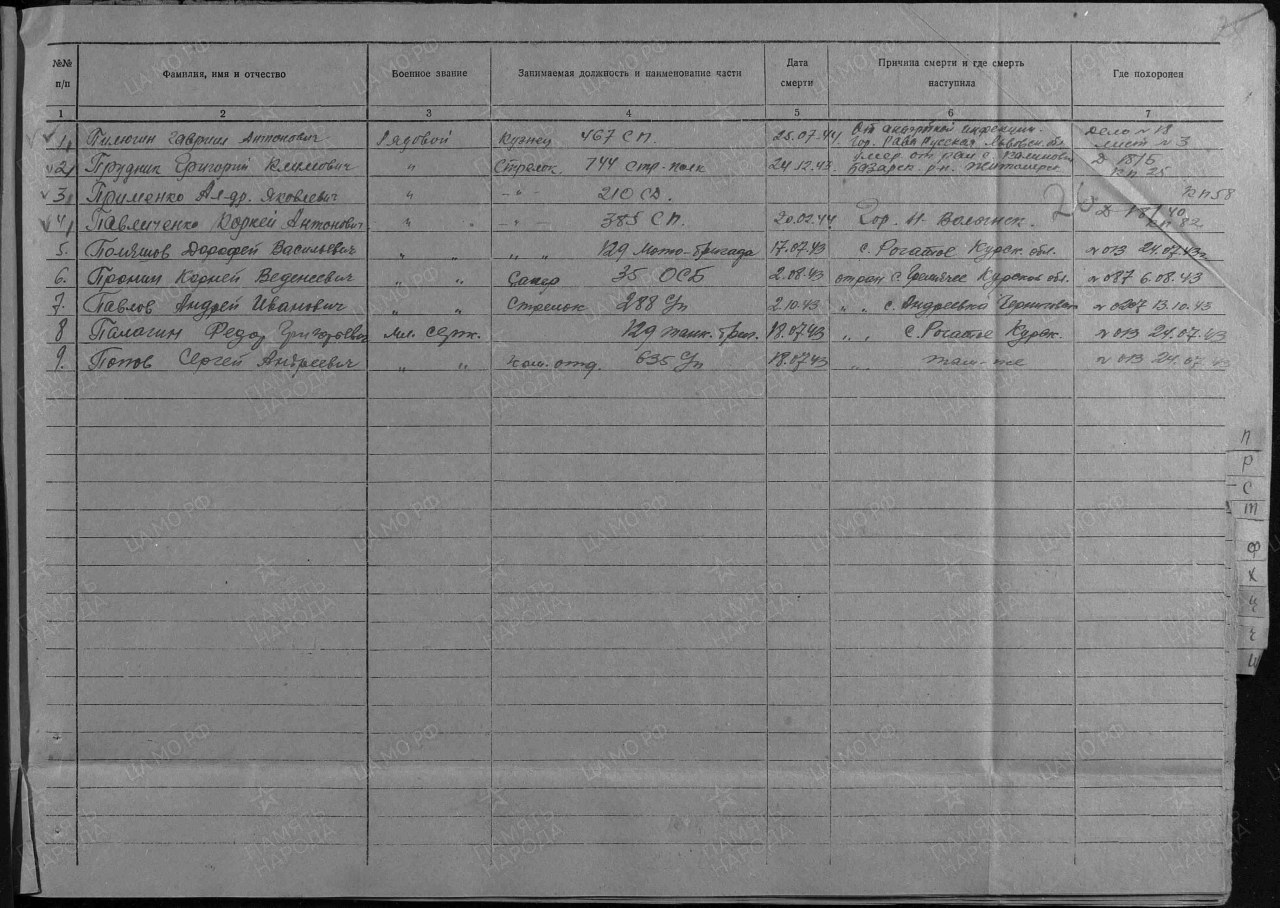 №№ п/п | Фамилия, имя и отчество | Военное звание | Занимаемая должность и наименование части | Дата смерти | Причина смерти и где смерть наступила | Где похоронен
1 | 2 | 3 | 4 | 5 | 6 | 7
1. Пилюгин Гавриил Антонович Рядовой Кузнец 467 СП. 25.07.44 От инфекции. Гор. Рава Русская Львовск. обл. Дело №18 лист №3
2. Прудник Григорий Климович " Стрелок 744 Стр. полк 24.12.43 умер от ран с. Базарск. р-н. Житомирск Д 18/5 25
3. Применко Ал-др. Яковлевич " -"- 210 СД. 58
4. Павличенко Корней Антонович " -"- 385 СП. 20.02.44 Гор. Н-Волынск. Д 18/40 82
5. Дорофей Васильевич " " " " 129 Мото-бригада 17.07.43 с. Рогатое Курск. обл. №013 24.07.43
6. Пронин Корней Веденеевич " " Сапер 35 ОСБ 2.08.43 с. Курской обл. №087 6.08.43
7. Павлов Андрей Иванович Стрелок 288 Гп 2.10.43 " " с. Андреевка Черниговск №0207 13.10.43
8 Палагин Федор Григорьевич Мл. серж. 129 танк. бриг. 18.07.43 " " с. Рогатое Курск. №013 24.07.43
9. Попов Сергей Андреевич " " ком. отд. 635 Гп 18.07.43 " там-же №013 24.07.43
П
Р
С
Т
Ф
Х
Ц
Ч
ЦАМО.РФ
ПАМЯТЬ НАРОДА